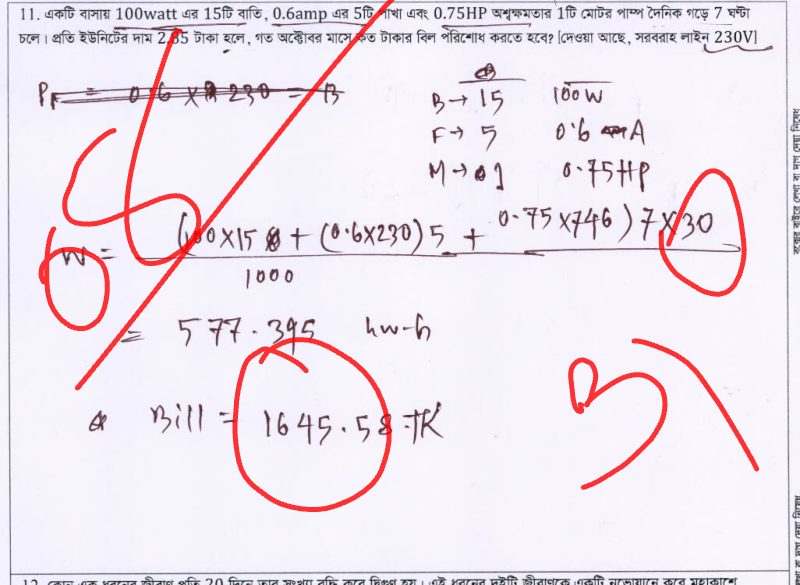 11. একটি বাসায় 100watt এর 15টি বাতি, 0.6amp এর 5টি পাখা এবং 0.75HP অশ্বক্ষমতার 1টি মোটর পাম্প দৈনিক গড়ে 7 ঘণ্টা
চলে। প্রতি ইউনিটের দাম 2.85 টাকা হলে, গত অক্টোবর মাসে কত টাকার বিল পরিশোধ করতে হবে? [দেওয়া আছে, সরবরাহ লাইন 230V]
B → 15 100W
F → 5 0.6 A
M → 01 0.75HP
W = (100×15 + (0.6×230) 5 + 0.75×746) 7×30
1000
= 577.395 kw-h
Bill = 1645.58 TK
B
12. কোন এক ধরনের জীবাণু প্রতি 20 দিনে তার সংখ্যা বৃদ্ধি করে দ্বিগুণ হয়। এই ধরনের দুইটি জীবাণুকে একটি নভোযানে করে মহাকাশে